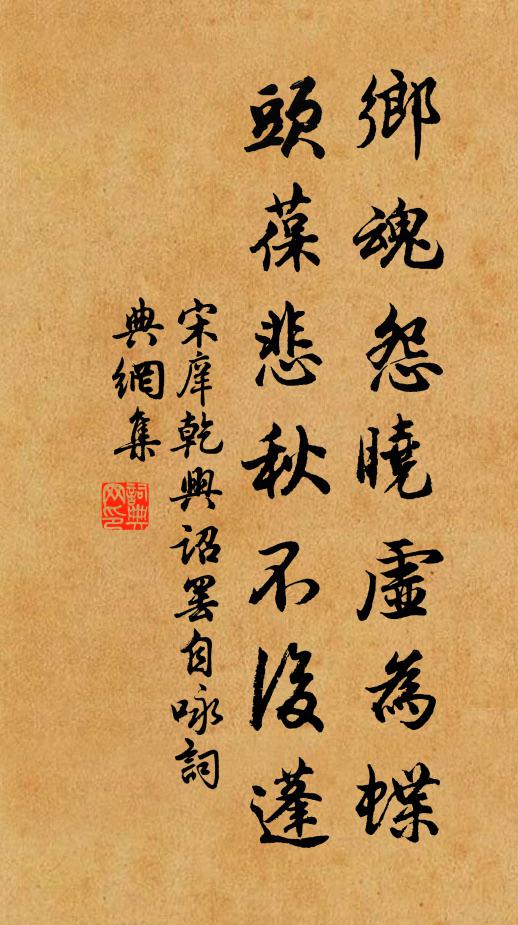 鄉魂怨曉虛為蝶
頭葆悲秋不後蓬
宋庠乾興詔罷自咏詞
典網集
詞典
网印